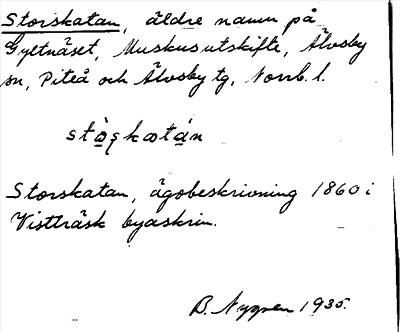 Storskatan, äldre namn på
Gyltnäset, Muskusutskifte, Älvsby
sn, Piteå och Älvsby tg, Norrb. l.
Storskatan, ägobeskrivning 1860 i
Vistträsk byaskrin.
B. Nygren 1935.